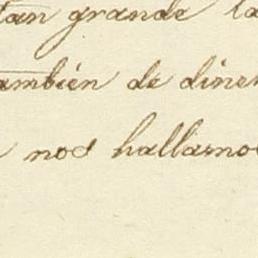 tan grande la
ambien de diner
nos hallamos